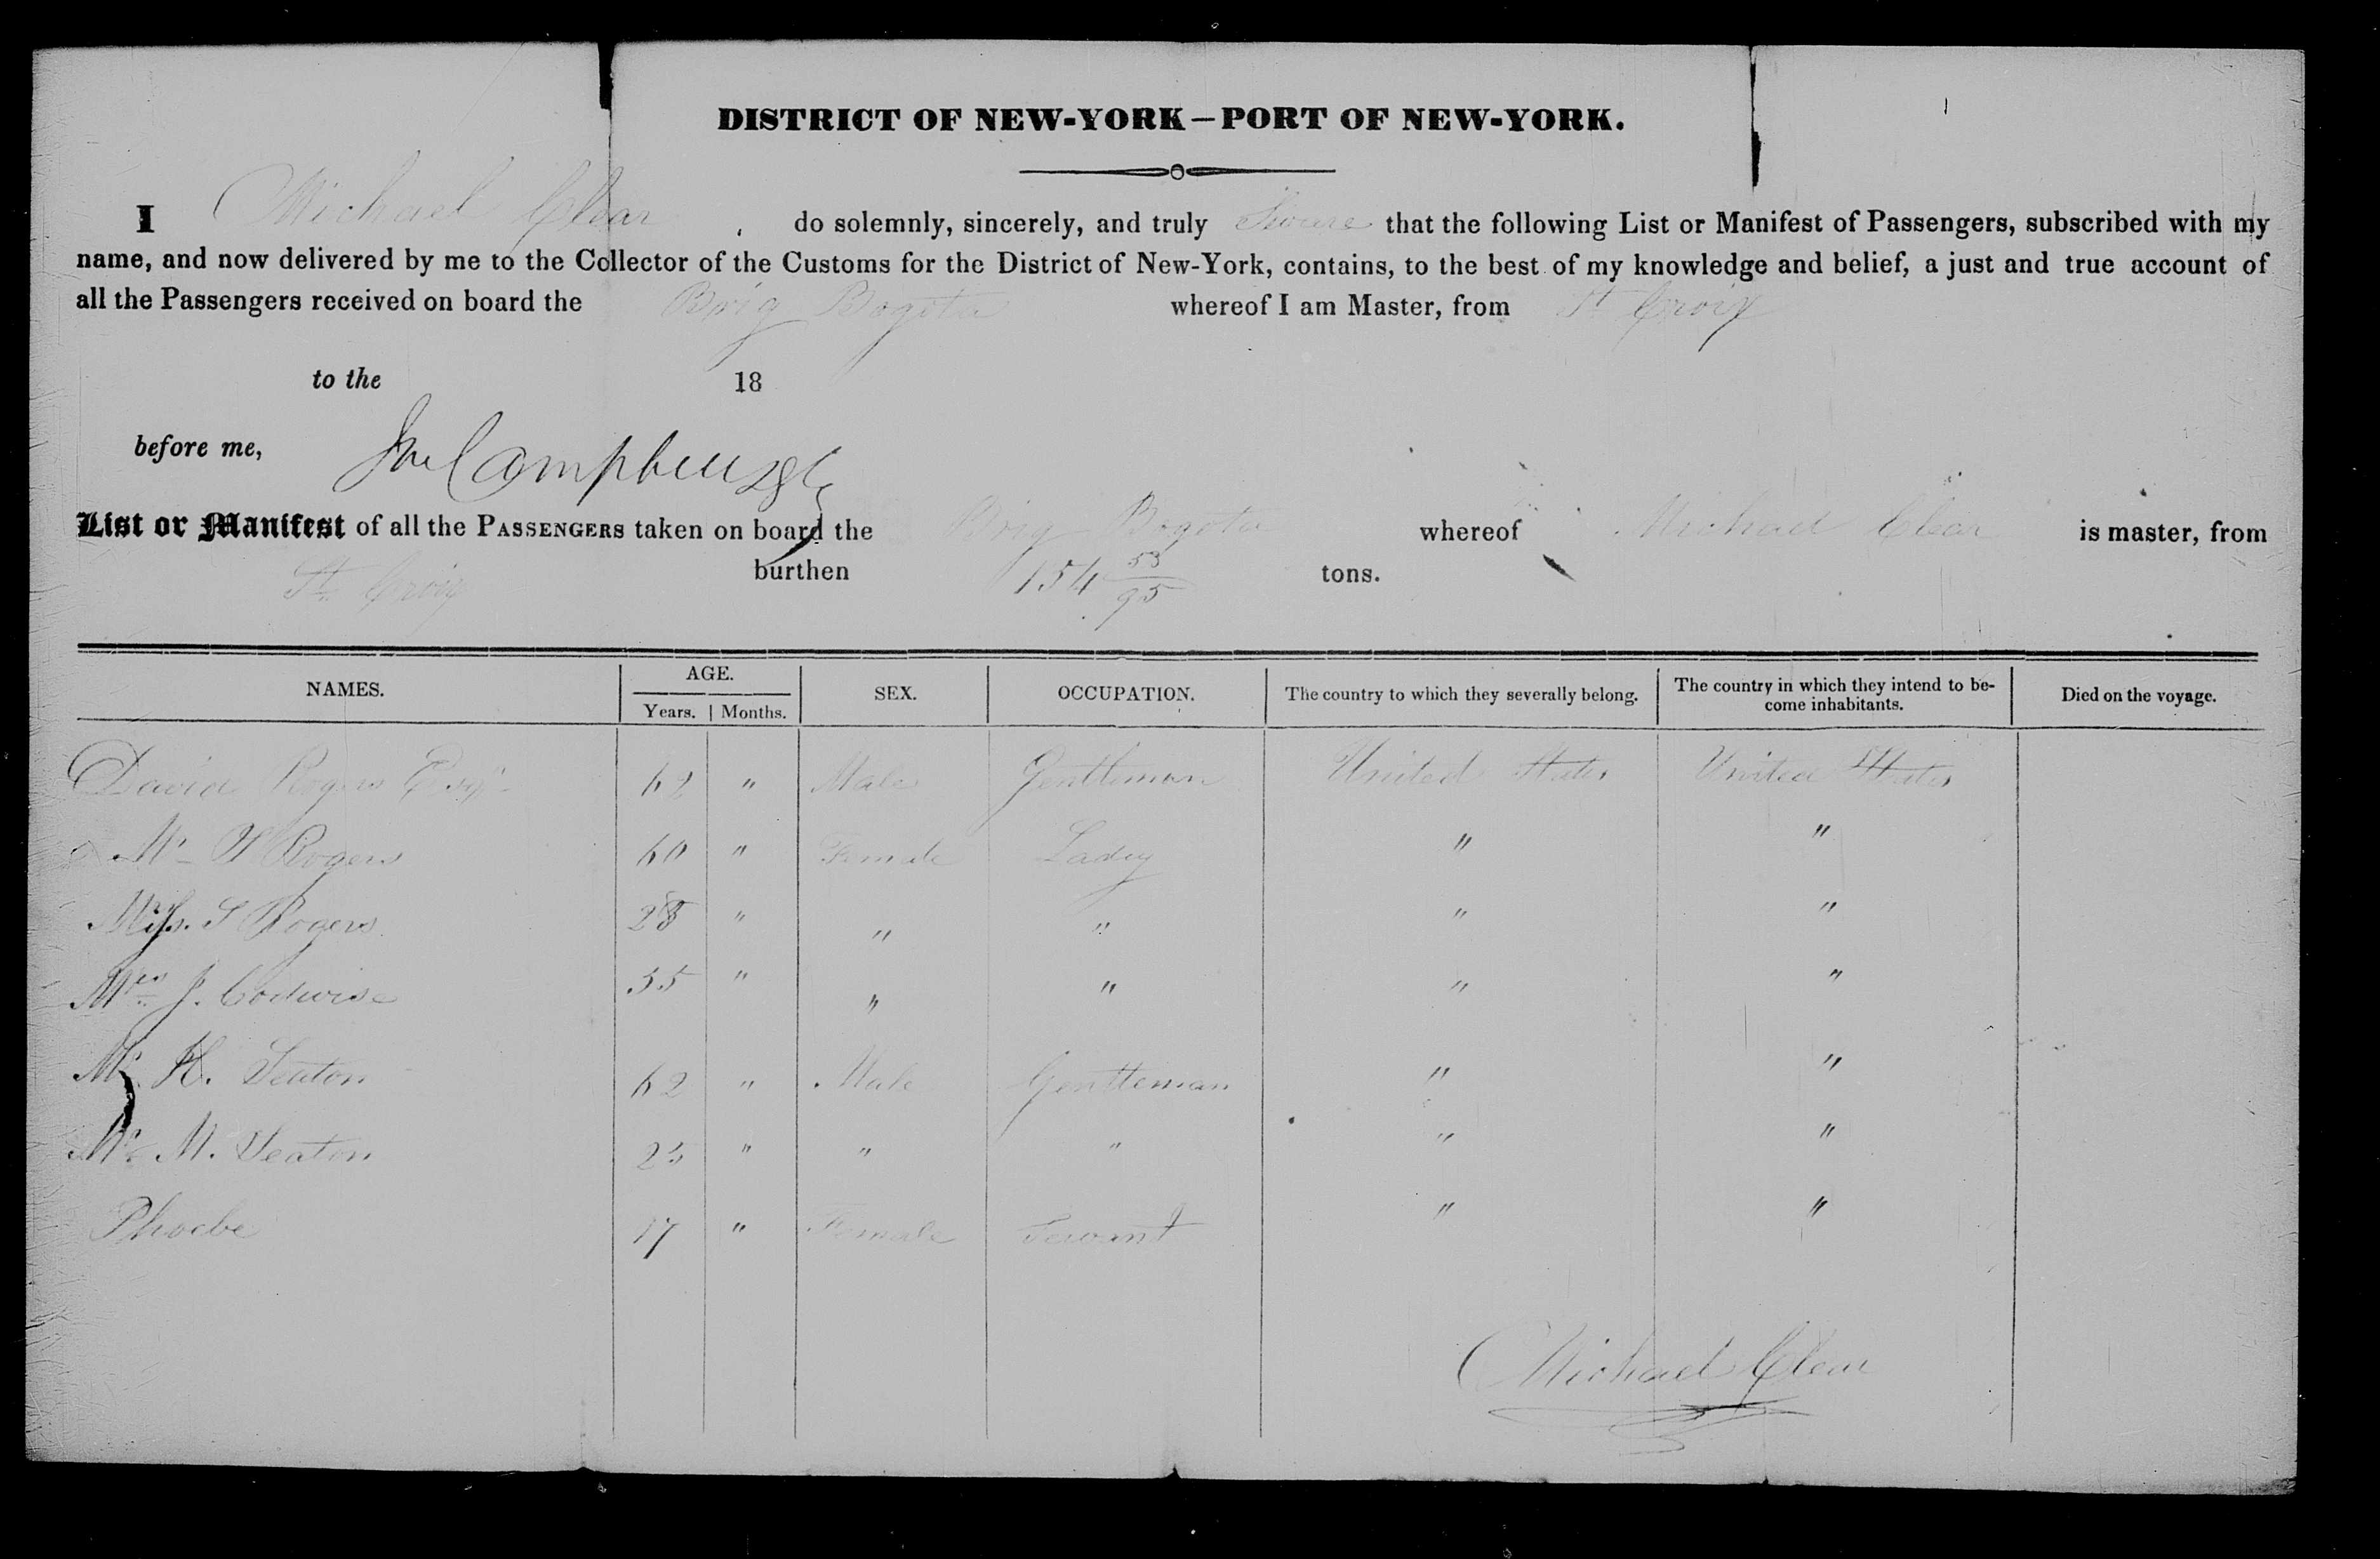 DISTRICT OF NEW-YORK—PORT OF NEW-YORK.
I Michael Clear, do solemnly, sincerely, and truly Swere that the following List or Manifest of Passengers, subscribed with my
name, and now delivered by me to the Collector of the Customs for the District of New-York, contains, to the best of my knowledge and belief, a just and true account of
all the Passengers received on board the Brig Bogota whereof I am Master, from St Croix
to the 18
before me, Campbell
List or Manifest of all the PASSENGERS taken on board the Brig Bogota whereof Michael Clear is master, from
St Croix burthen 154 53/95 tons.
NAMES. AGE. Years. Months. SEX. OCCUPATION. The country to which they severally belong. The country in which they intend to become inhabitants. Died on the voyage.
David Rogers Esqr 62 " Male Gentleman United States United States
Rogers 60 " Female Lady " "
Miss. S Rogers 28 " " " " "
Mrs J. Codwise 35 " " " " "
Mr H. Seaton 62 " Male Gentleman " "
Mr M. Seaton 25 " " " " "
Phoebe 17 " Female Servant " "
Michael Clear